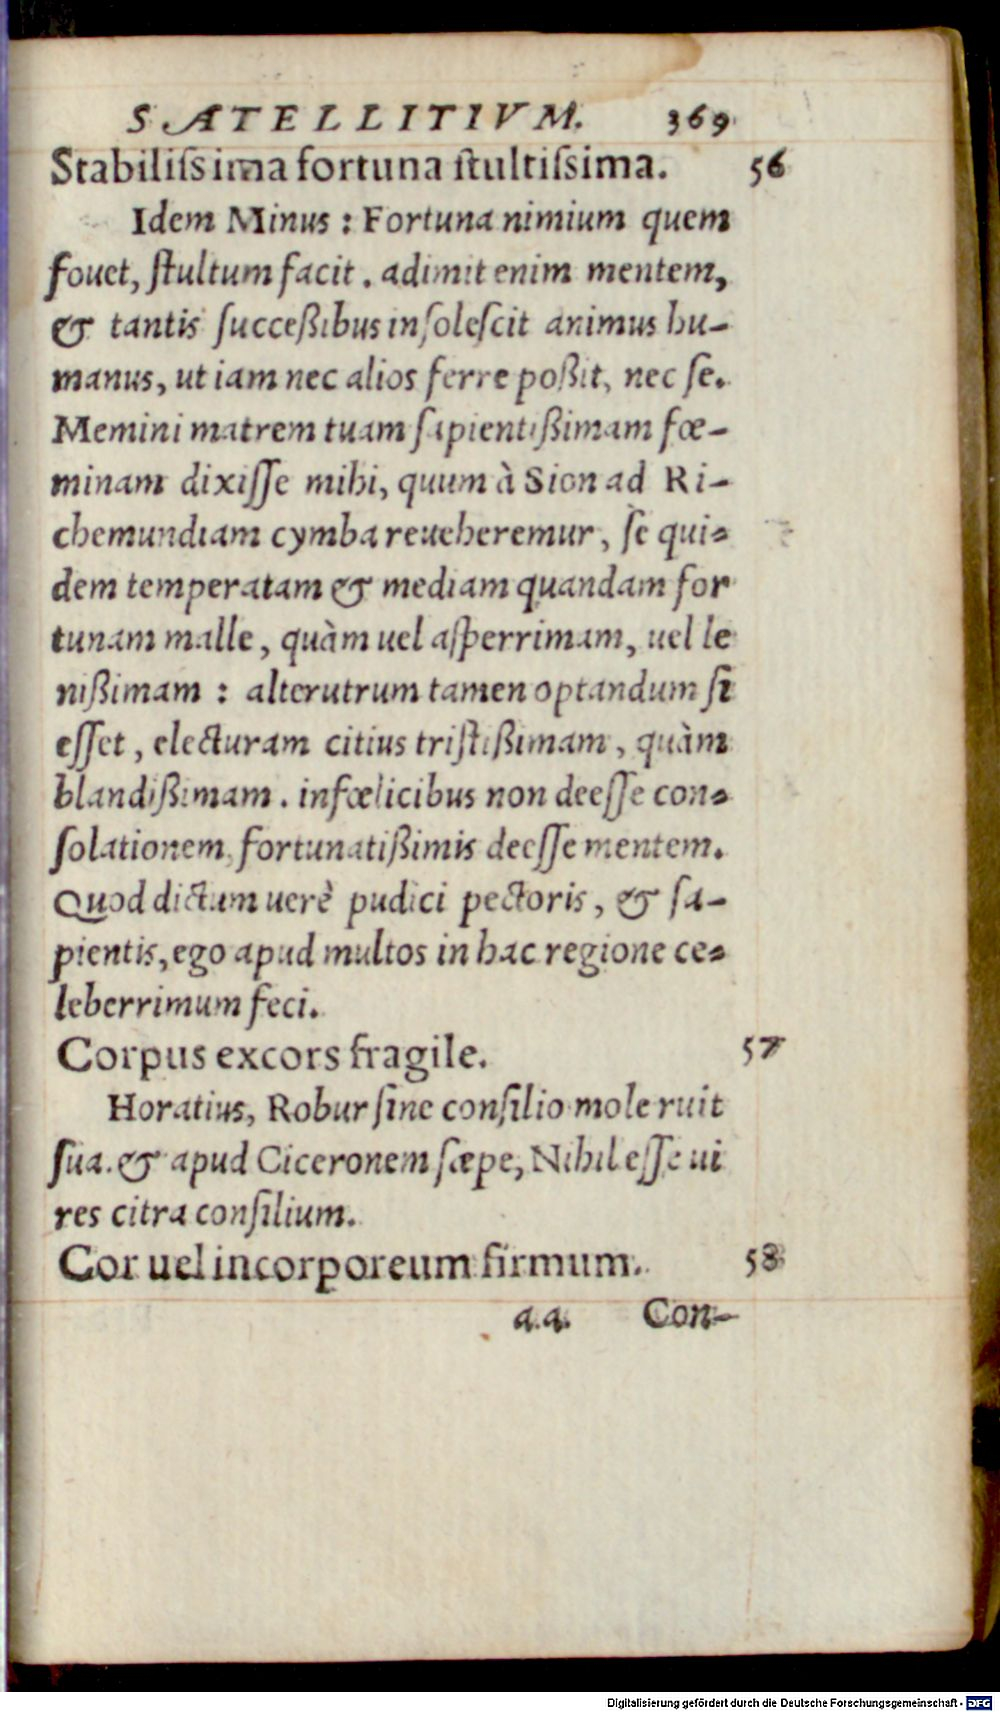 SATELLITIVM. 369
Stabiliſsima fortuna ſtultiſsima. 56
Idem Minus : Fortuna nimium quem
fouet, ſtultum facit . adimit enim mentem,
& tantis ſucceßibus inſoleſcit animus hu-
manus, ut iam nec alios ferre poßit, nec ſe.
Memini matrem tuam ſapientißimam fœ-
minam dixiſſe mihi, quum à Sion ad Ri-
chemundiam cymba reueheremur, ſe qui-
dem temperatam & mediam quandam for
tunam malle, quàm uel aſperrimam, uel le
nißimam : alterutrum tamen optandum ſi
eſſet, electuram citius triſtißimam, quàm
blandißimam . infœlicibus non deeſſe con-
ſolationem, fortunatißimis deeſſe mentem.
Quod dictum uerè pudici pectoris, & ſa-
pientis, ego apud multos in hac regione ce-
leberrimum feci.
Corpus excors fragile. 57
Horatius, Robur ſine conſilio mole ruit
ſua. & apud Ciceronem ſæpe, Nihil eſſe ui
res citra conſilium.
Cor uel incorporeum firmum. 58
a.a. Con-
Digitalisierung gefördert durch die Deutsche Forschungsgemeinschaft - DFG